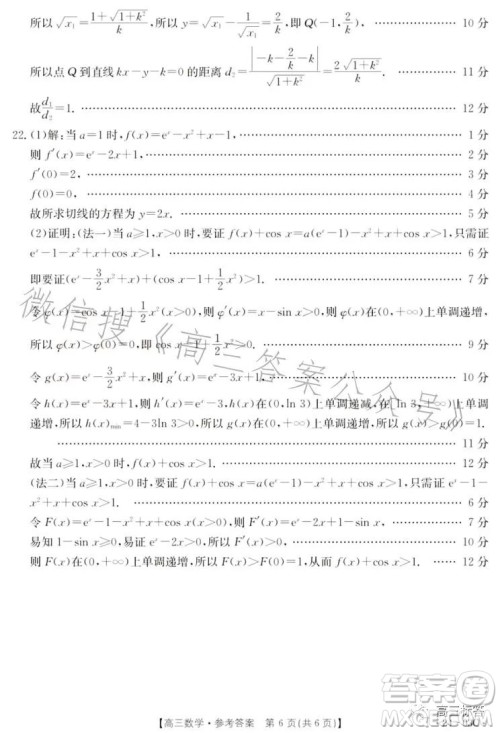 所以√x₁=(1+√(1+k²))/k,所以y=√x₁−1/√x₁=2/k,即Q(−1,2/k),………… 10分
所以点Q到直线kx−y−k=0的距离d₂=|−k−2/k−k|/√(1+k²)=2√(1+k²)/k.………… 11分
故d₁/d₂=1.………… 12分
22.(1)解:当a=1时,f(x)=eˣ−x²+x−1,………… 1分
则f′(x)=eˣ−2x+1,………… 2分
f′(0)=2,………… 3分
f(0)=0,………… 4分
故所求切线的方程为y=2x.………… 5分
(2)证明:(法一)当a≥1,x>0时,要证f(x)+cos x=a(eˣ−1)−x²+x+cos x≥
eˣ−1−x²+x+cos x>1,………… 6分
即要证(eˣ−3/2x²+x)+(cos x−1+1/2x²)>1.………… 7分
令φ(x)=cos x−1+1/2x²(x>0),则φ′(x)=x−sin x>0,则φ(x)在(0,+∞)上单调递增,
所以φ(x)>φ(0)=0,即cos x−1+1/2x²>0.………… 9分
令g(x)=eˣ−3/2x²+x(x>0),则g′(x)=eˣ−3x+1.………… 10分
令h(x)=eˣ−3x+1,则h(x)在(0,ln 3)上单调递减,在(ln 3,+∞)上单调递
增,所以h(x)min=4−3ln 3>0,所以g(x)在(0,+∞)上单调递增,所以g(x)>g(0)=1.
………… 11分
故当a≥1时,f(x)+cos x>1.………… 12分
(法二)当a≥1,x>0时,要证f(x)+cos x=a(eˣ−1)−x²+x+cos x≥eˣ−1−
x²+x+cos x>1.………… 6分
令F(x)=eˣ−1−x²+x+cos x,则F′(x)=eˣ−2x+1−sin x,………… 7分
易知1−sin x≥0,易证eˣ−2x>0,所以F′(x)>0,………… 10分
则F(x)在(0,+∞)上单调递增,所以F(x)>F(0)=1,从而f(x)+cos x>1.………… 12分
微信搜《高三答案公众号》
【高三数学·参考答案 第6页(共6页)】
答案圈
高三标答